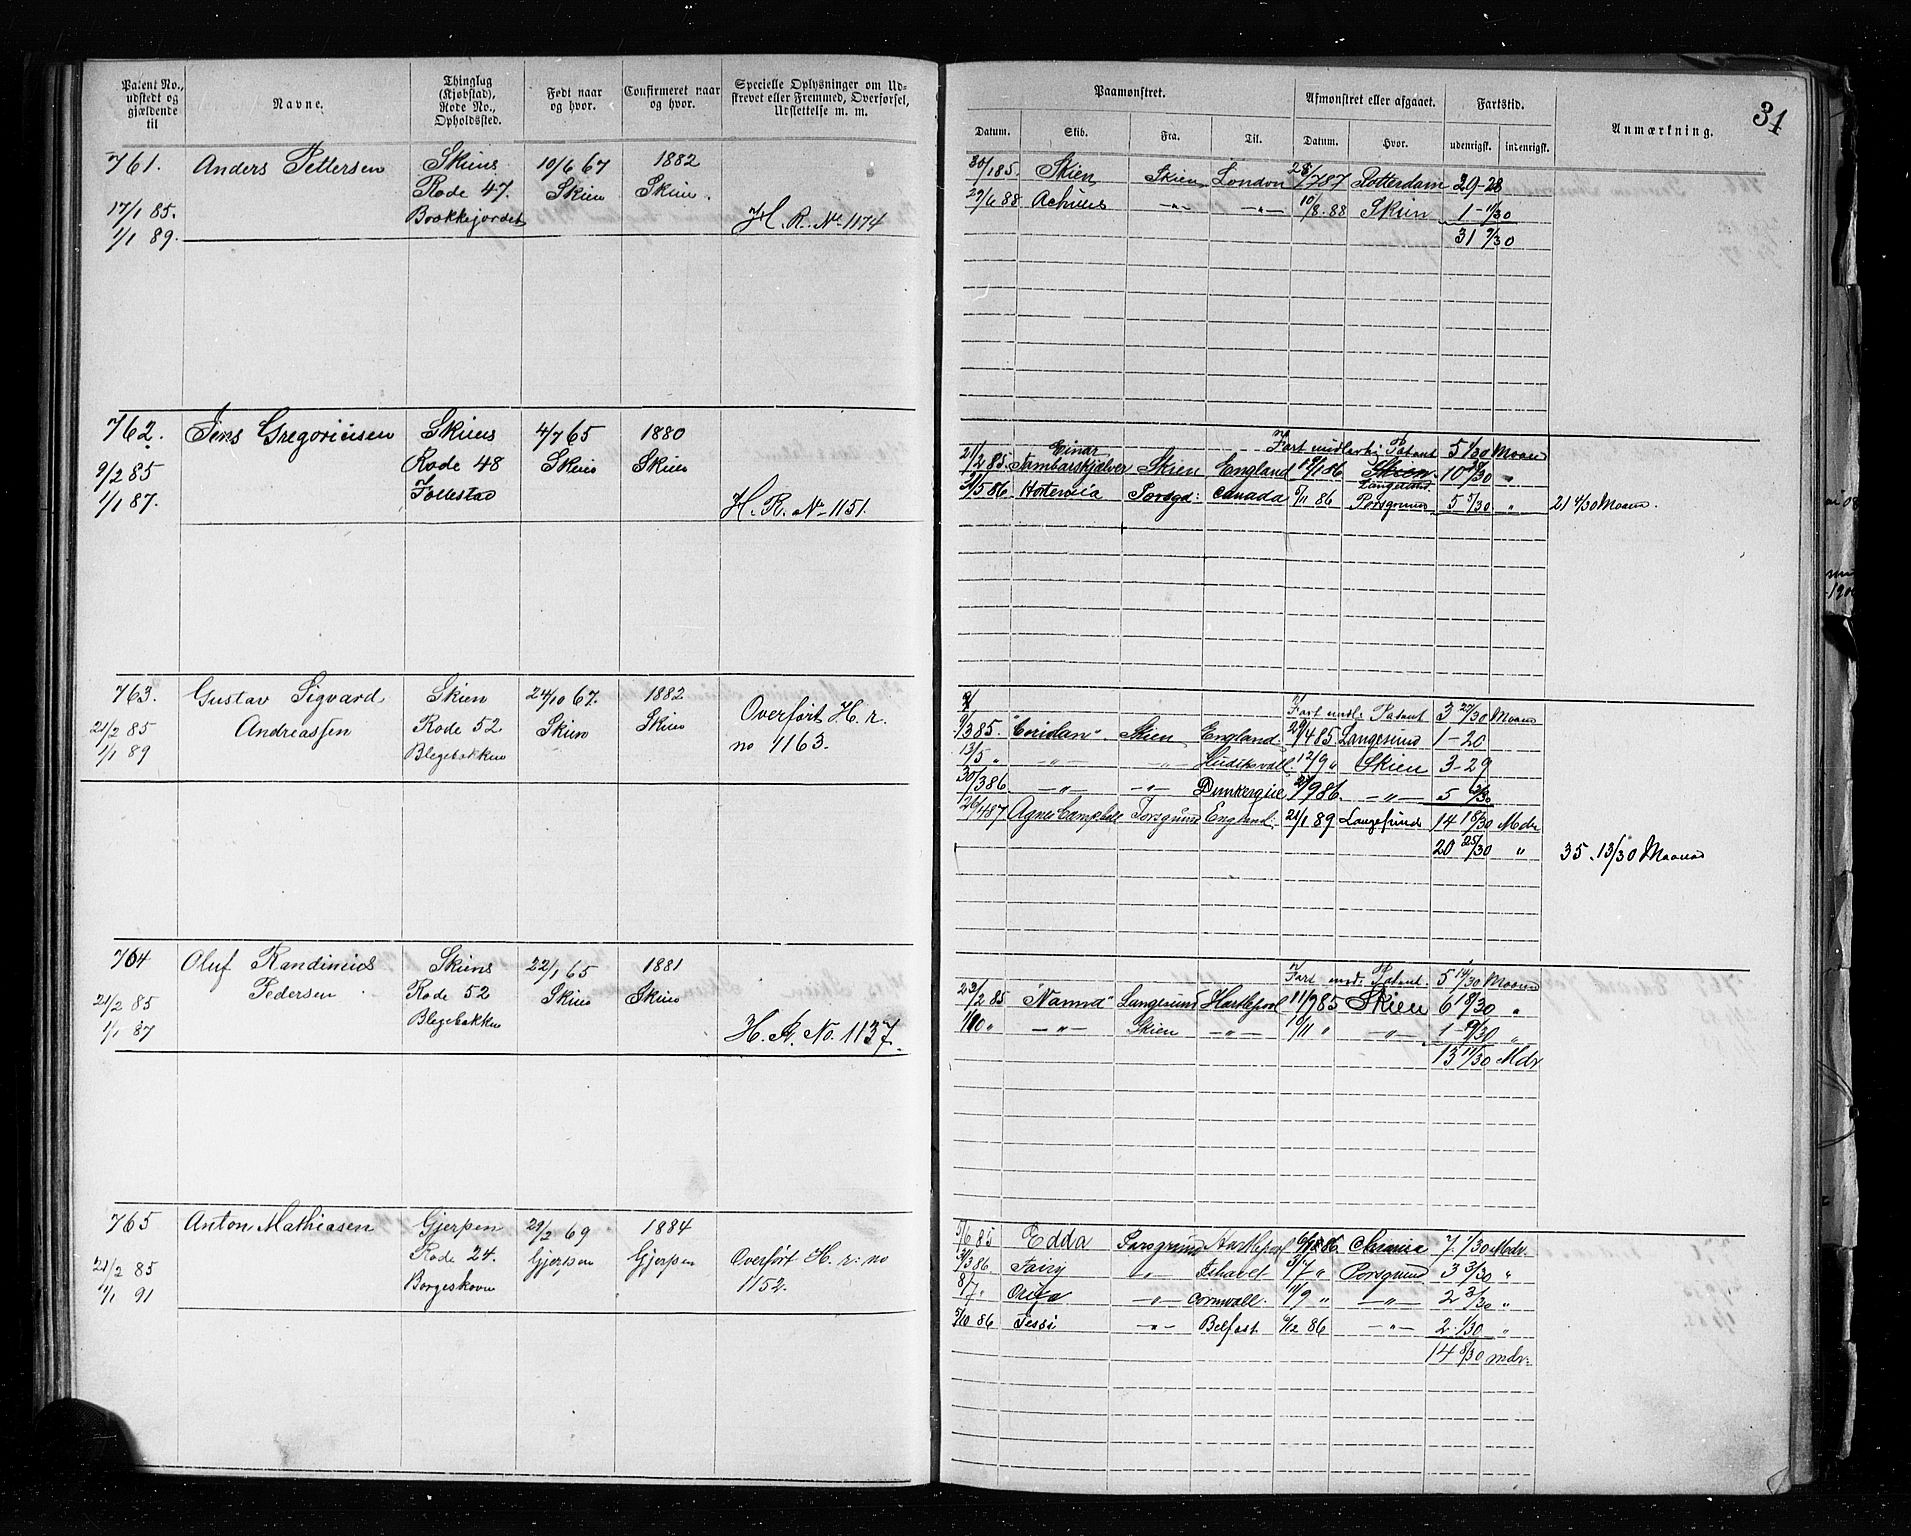 Patent No., udstedt og gjældende til
Navne.
Thinglag (Kjøbstad), Rode No., Opholdssted.
Født naar og hvor.
Confirmeret naar og hvor.
Specielle Oplysninger om Udstrevet eller Fremmed, Overførsel, Udslettelse m. m.
Paamønstret.
Afmønstret eller afgaaet.
Fartstid.
Anmærkning.
31
Datum.
Skib.
Fra.
Til.
Datum.
Hvor.
udenrigsk.
indenrigsk.
761. Anders Pettersen Skiens 10/6 67 1882
Rode 47. Skien Skien.
17/1 85. Brækkejordet H. R. No 1174
1/1 89.
30/1 85. Skien Skien London 28/7 87 Rotterdam 29-28
27/6 88 Achilles -"- -"- 10/8 88 Skien 1-11/30
31 9/30
762. Jens Gregoriussen Skiens 4/7 65 1880
9/2 85 Rode 48 Skien Skien
1/1 87. Follestad H. R. No 1151.
Patent 5 1/30 Maaned
21/2 85. Einar Tambarskjelver Skien England 86 Skien Langesund 10
86 Porsgd: Canada 86 Porsgrund 5 3/30 " 21 4/30 Maaned.
763. Gustav Sigvard Skien 24/10 67. 1882
21/2 85 Andreassen Rode 52 Skien Skien Overført H. r.
1/1 89 Blegebakken no 1163.
Fart indl: Patent 3 22/30 Maaned
9/3 85. "Coridan". Skien England 29/4 85 Langesund 1-20
13/5 " -"- -"- Hudiksvall. 12/9 " Skien 3-29
30/3 86 -"- -"- Dunkerque 86. -"- 5
26/4 87 Agnes Campbell Porsgrund England. 21/1 89 Langesund 14 18/30 Mdr
20 25/30 " 35. 13/30 Maaned
764 Oluf Randinius Skiens 22/1 65 1881
21/2 85 Pedersen Rode 52 Skien Skien
1/1 87 Blegebakken H. R. No. 1137.
Fart indl: Patent. 5 14/30 Maaned
23/2 85 "Norma" Langesund Hartlepool 11/9 85 Skien 6 18/30 "
1/10 " -"- Skien -"- 10/11 " -"- 1- 9/30 "
13 11/30 Mdr
765 Anton Mathiasen Gjerpen 29/2 69 1884
21/2 85 Rode 24. Gjerpen Gjerpen Overført H. r: no
1/1 91 Borgeskoven 1152.
5/6 85 Edda Porsgrund Hartlepool 86. 7. 1/30 Mdr.
3 86. Fairy " 7 " Porsgrund 3 3/30 "
8/7 " -"- Cornwall. 11/9 " -"- 2 3/30 "
5/10 86 -"- Belfast 6/12 86 -"- 2. 1/30 "
14 8/30 mdr.